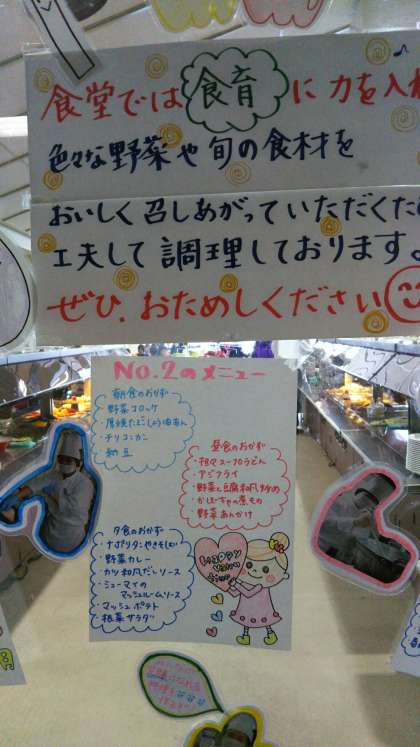 食堂では 食育 に 力を入れ
色々な野菜や旬の食材を
おいしく召しあがっていただくため
工夫して調理しております。
ぜひ、おためしください
No.2のメニュー
朝食のおかず
・野菜コロッケ
・チリコンカン
・納豆
昼食のおかず
・アジフライ
・野菜と豆腐和風炒め
・かぼちゃの煮もの
・野菜あんかけ
夕食のおかず
・ナポリタンやきそば
・野菜カレー
・カツ和風だしソース
・シューマイの
マッシュルームソース
・マッシュポテト
・根菜サラダ